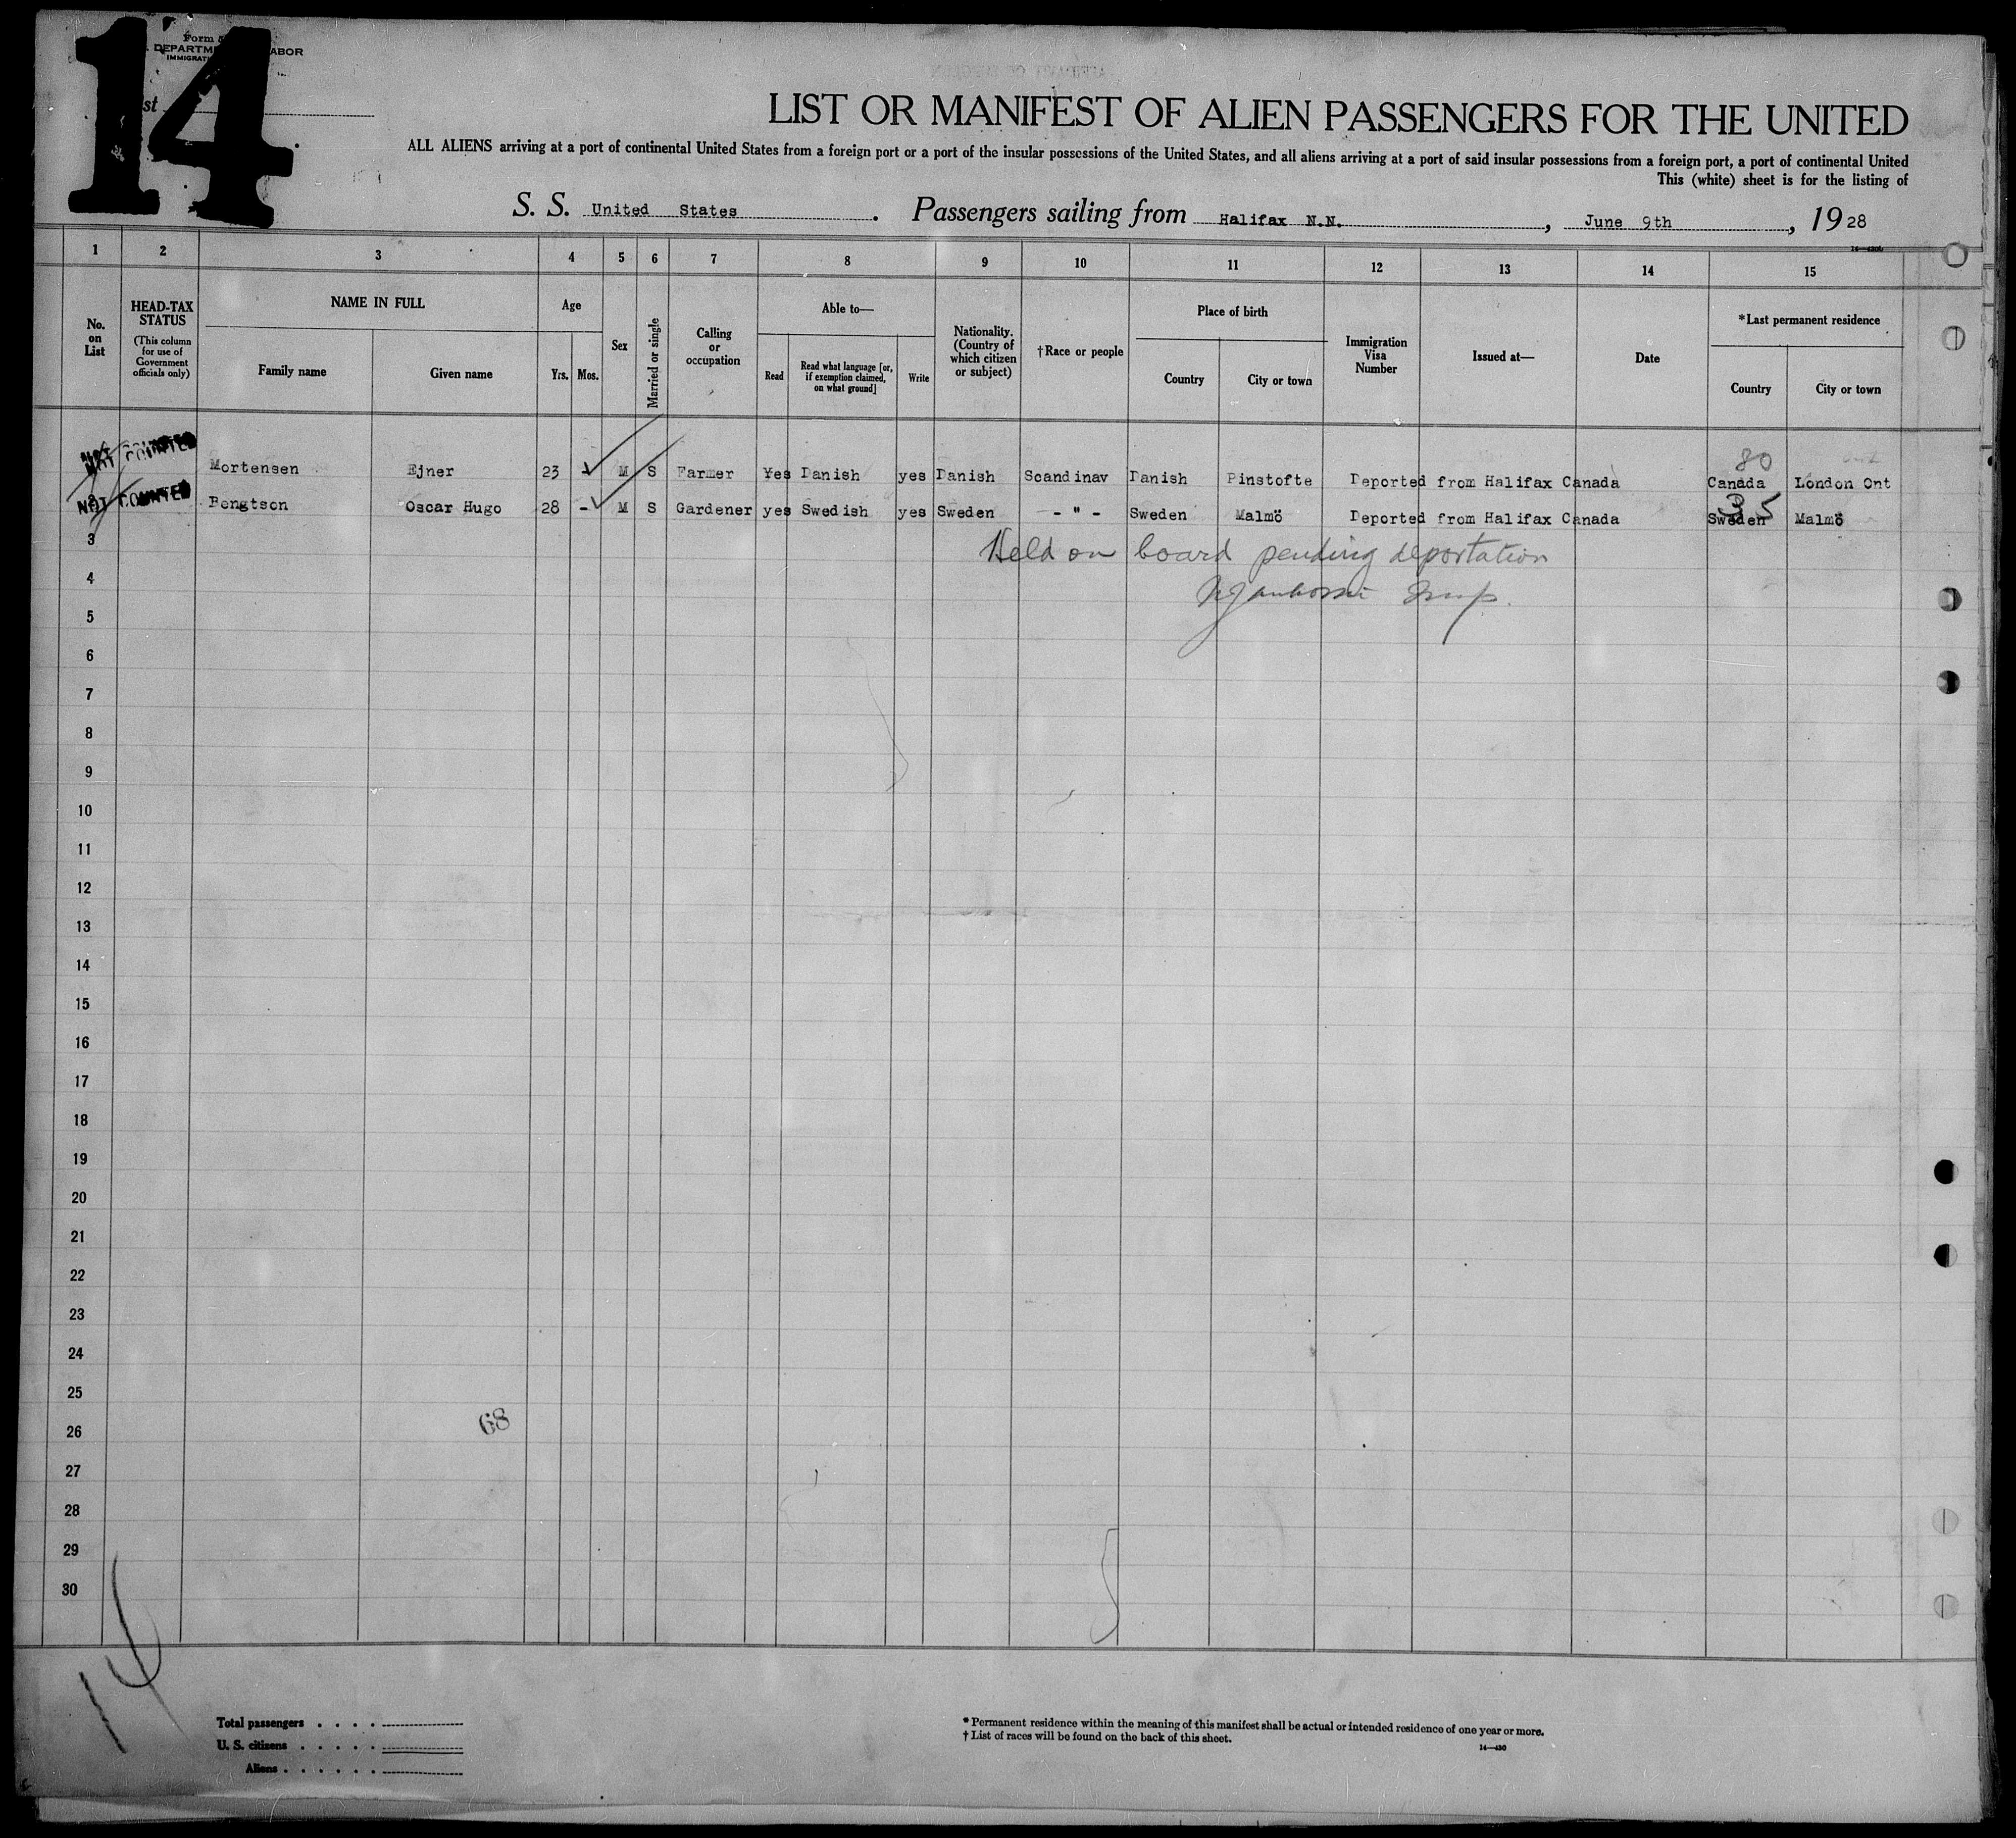 14
Form
DEPARTM ABOR
IMMIGRAT
st
LIST OR MANIFEST OF ALIEN PASSENGERS FOR THE UNITED
ALL ALIENS arriving at a port of continental United States from a foreign port or a port of the insular possessions of the United States, and all aliens arriving at a port of said insular possessions from a foreign port, a port of continental United
This (white) sheet is for the listing of
S. S. United States . Passengers sailing from Halifax N.N. , June 9th , 1928
1 2 3 4 5 6 7 8 9 10 11 12 13 14 15
No. on List
HEAD-TAX STATUS
(This column for use of Government officials only)
NAME IN FULL
Family name Given name
Age
Yrs. Mos.
Sex
Married or single
Calling or occupation
Able to—
Read
Read what language [or, if exemption claimed, on what ground]
Write
Nationality. (Country of which citizen or subject)
†Race or people
Place of birth
Country City or town
Immigration Visa Number
Issued at—
Date
*Last permanent residence
Country City or town
80
NOT COUNTED Mortensen Ejner 23 - M S Farmer Yes Danish yes Danish Scandinav Danish Pinstofte Deported from Halifax Canada Canada London Ont
35
NOT COUNTED Bengtson Oscar Hugo 28 - M S Gardener yes Swedish yes Sweden - " - Sweden Malmö Deported from Halifax Canada Sweden Malmö
3
Held on board pending deportation
4
Insp.
5
6
7
8
9
10
11
12
13
14
15
16
17
18
19
20
21
22
23
24
25
68
26
27
28
29
30
14
Total passengers . . . .
U. S. citizens . . . . .
Aliens . . . . . .
* Permanent residence within the meaning of this manifest shall be actual or intended residence of one year or more.
† List of races will be found on the back of this sheet.
14—430